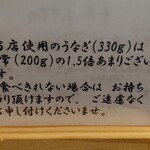 当店使用のうなぎ(330g)は
通常(200g)の1.5倍あまりござい
食べくれない場合は お持ち
帰り頂けますので、ご遠慮なく
お申し付けくださいませ。